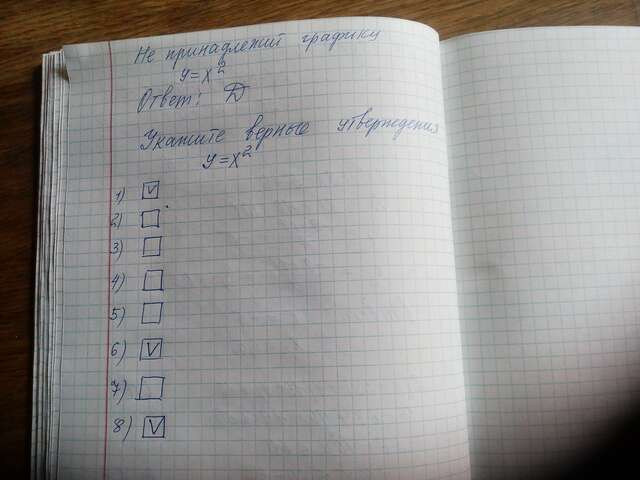 Не принадлежит графику
y=x²
Ответ: D
Укажите верные утверждения
y=x²
1) V
2)
3)
4)
5)
6) V
7)
8) V